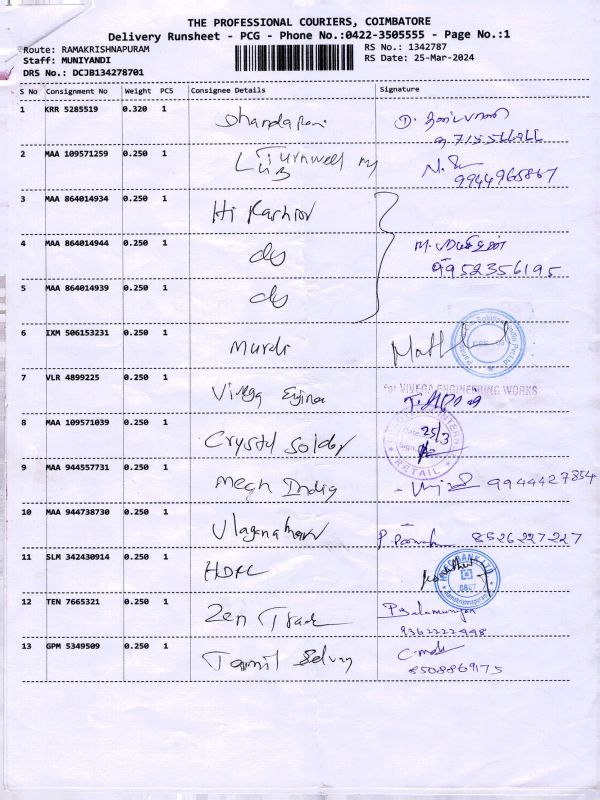 THE PROFESSIONAL COURIERS, COIMBATORE
Delivery Runsheet - PCG - Phone No.:0422-3505555 - Page No.:1
Route: RAMAKRISHNAPURAM
RS No.: 1342787
Staff: MUNIYANDI
RS Date: 25-Mar-2024
DRS No.: DCJB134278701
S No Consignment No Weight PCS Consignee Details Signature
1 KRR 5285519 0.320 1
2 MAA 109571259 0.250 1 Turnwell
9944965867
3 MAA 864014934 0.250 1 Hi Fashion
4 MAA 864014944 0.250 1 do
9952356195
5 MAA 864014939 0.250 1 do
6 IXM 506153231 0.250 1 Murdi
7 VLR 4899225 0.250 1 Vivega
for VIVEGA ENGINEERING WORKS
8 MAA 109571039 0.250 1 Crystal Solder
25/3
RETAIL
9 MAA 944557731 0.250 1 Megh India
9944427854
10 MAA 944738730 0.250 1
8526227227
11 SLM 342430914 0.250 1 HDFC
12 TEN 7665321 0.250 1 Zen Trade
P. Balamurugan
9362222448
13 GPM 5349509 0.250 1 Tamil Selvan
8508869175